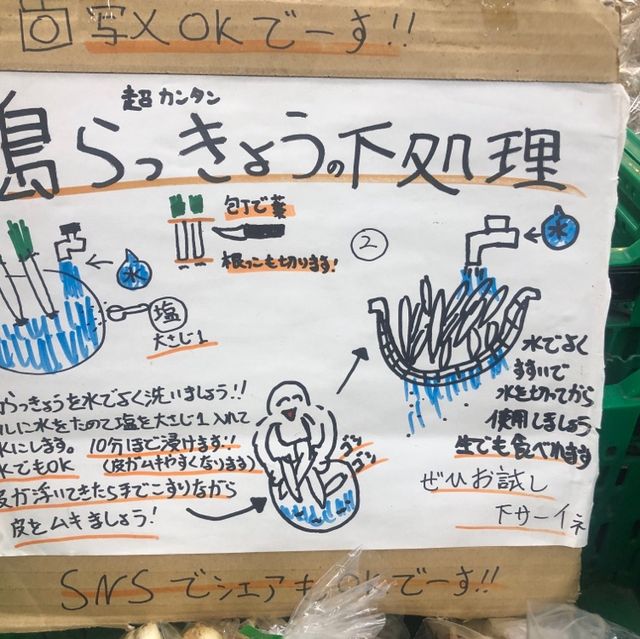 写メOKでーす!!
超カンタン
島らっきょうの下処理
包丁で葉
根っこも切ります!
水
塩
大さじ1
②
水
水でよく
すすいで
水を切ってから
使用しましょう
生でも食べれます
ぜひお試し
下サーイネ
らっきょうを水でよく洗いましょう!!
ルに水をためて塩を大さじ1入れて
水にします。10分ほど浸けます!!
水でもOK(皮がムキやすくなります)
皮が浮いてきたら手でこすりながら
皮をムキましょう!
ゴシ
ゴシ
SNSでシェアもOKでーす!!